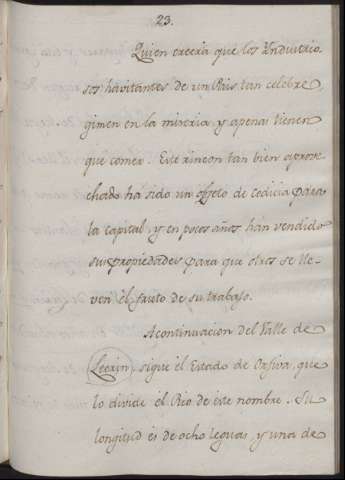 23.
Quien creería que los Yndustrio
sos havitantes de un Pais tan celebre
gimen en la miseria y apenas tienen
que comer. Este rincon tan bien aprove
chado há sido un objeto de codicia para
la capital, y en pocos años hán vendido
sus propiedades para que otros se lle
ven él fruto de su trabajo.
Acontinuacion del Valle de
Lecrin, sigue él Estado de Orjiva, que
lo divide el Rio de este nombre. Su
longitud és de ocho leguas, y una de